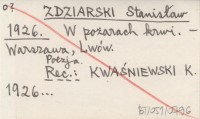 07
ZDZIARSKI Stanisław
1926. W pożarach krwi. –
Warszawa, Lwów.
Poezja.
Rec.: KWAŚNIEWSKI K.
1926...